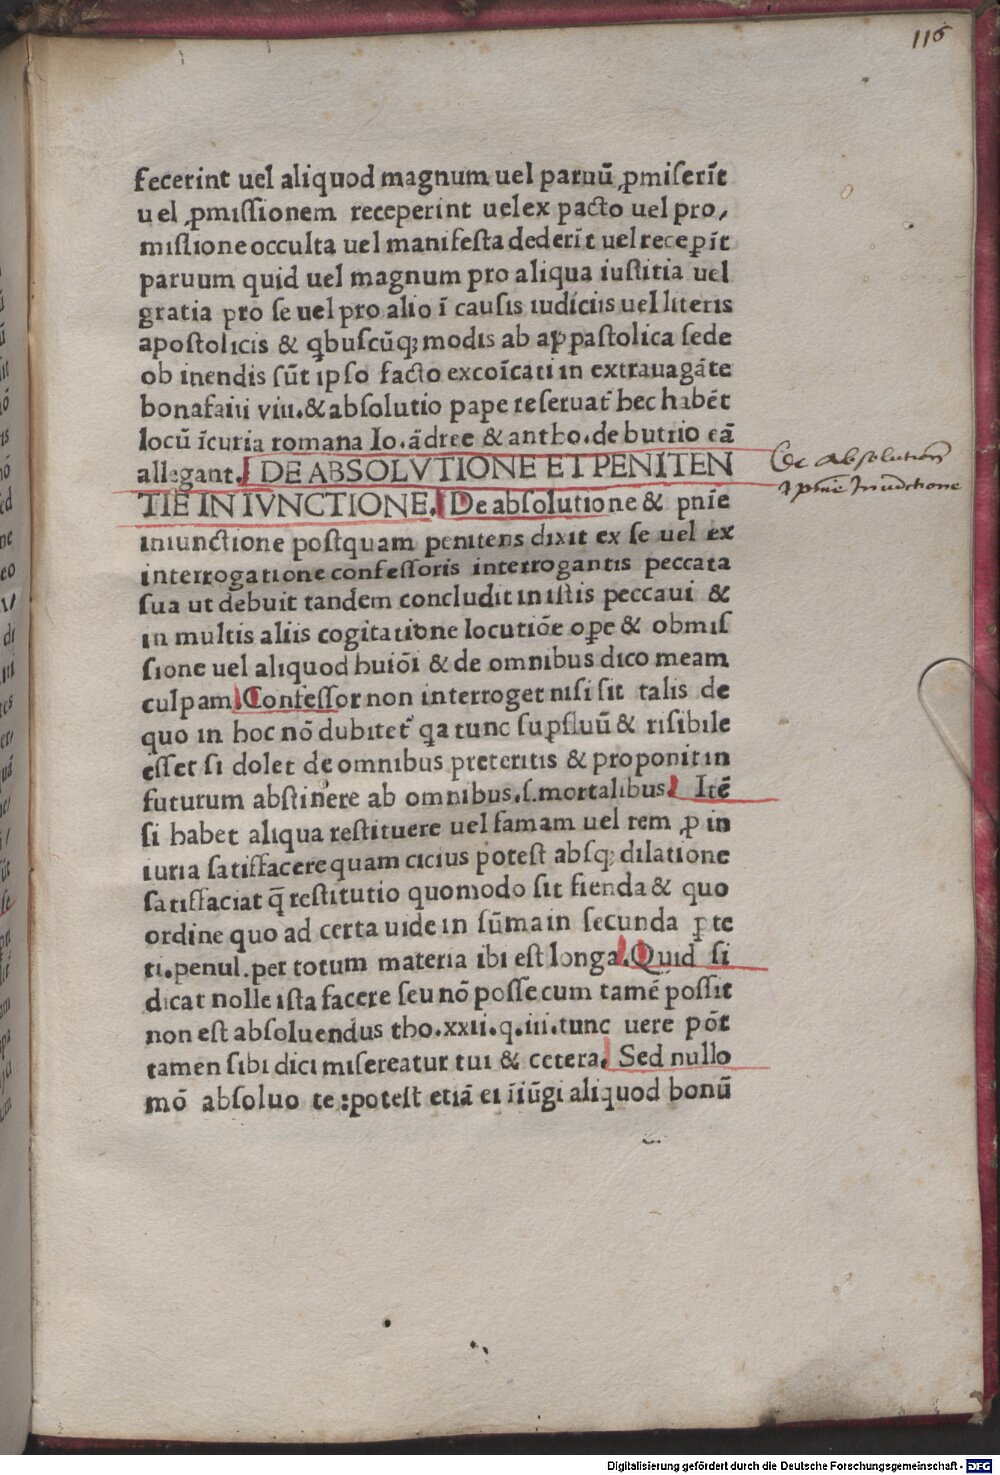 116
fecerint uel aliquod magnum uel paruū ꝓmiserīt
uel ꝓmissionem receperint uel ex pacto uel pro,
missione occulta uel manifesta dederīt uel recep̄it
paruum quid uel magnum pro aliqua iustitia uel
gratia pro se uel pro alio ī causis iudiciis uel literis
apostolicis & qbuscūqꝫ modis ab appastolica sede
ob inendis sūt ipso facto excoīcati in extrauagāte
bonafaiii viii.& absolutio pape reseruat hec habēt
locū īcuria romana Io.ādree & antho.de butrio eā
allegant. DE ABSOLVTIONE ET PENITEN
TIE IN IVNCTIONE. De absolutione & pnīe
De Absolutiōn
⁊ pnie Iniunctione
iniunctione postquam penitens dixit ex se uel ex
interrogatione confessoris interrogantis peccata
sua ut debuit tandem concludit in istis peccaui &
in multis aliis cogitatione locutiōe oꝑe & obmis
sione uel aliquod huiōi & de omnibus dico meam
culpam Confessor non interroget nisi sit talis de
quo in hoc nō dubitet qa tunc suꝑfluū & risibile
esset si dolet de omnibus preteritis & proponit in
futurum abstinere ab omnibus.s.mortalibus. Itē
si habet aliqua restituere uel famam uel rem ꝑ in
iuria satisfacere quam cicius potest absqꝫ dilatione
satisfaciat q̄ restitutio quomodo sit fienda & quo
ordine quo ad certa uide in sūma in secunda ꝑte
ti.penul.per totum materia ibi est longa. Quid si
dicat nolle ista facere seu nō posse cum tamē possit
non est absoluendus tho.xxii.q.iii.tunc uere pōt
tamen sibi dici misereatur tui & cetera. Sed nullo
mō absoluo te:potest etiā ei īiūgi aliquod bonū
Digitalisierung gefördert durch die Deutsche Forschungsgemeinschaft - DFG